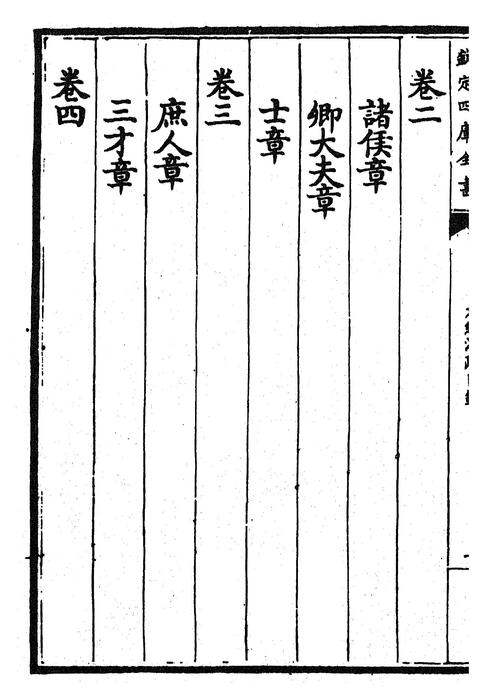 欽定四庫全書
卷二
諸侯章
卿大夫章
士章
卷三
庶人章
三才章
卷四